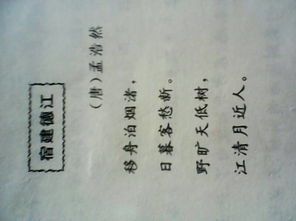 宿建德江
（唐）孟浩然
移舟泊烟渚，
日暮客愁新。
野旷天低树，
江清月近人。